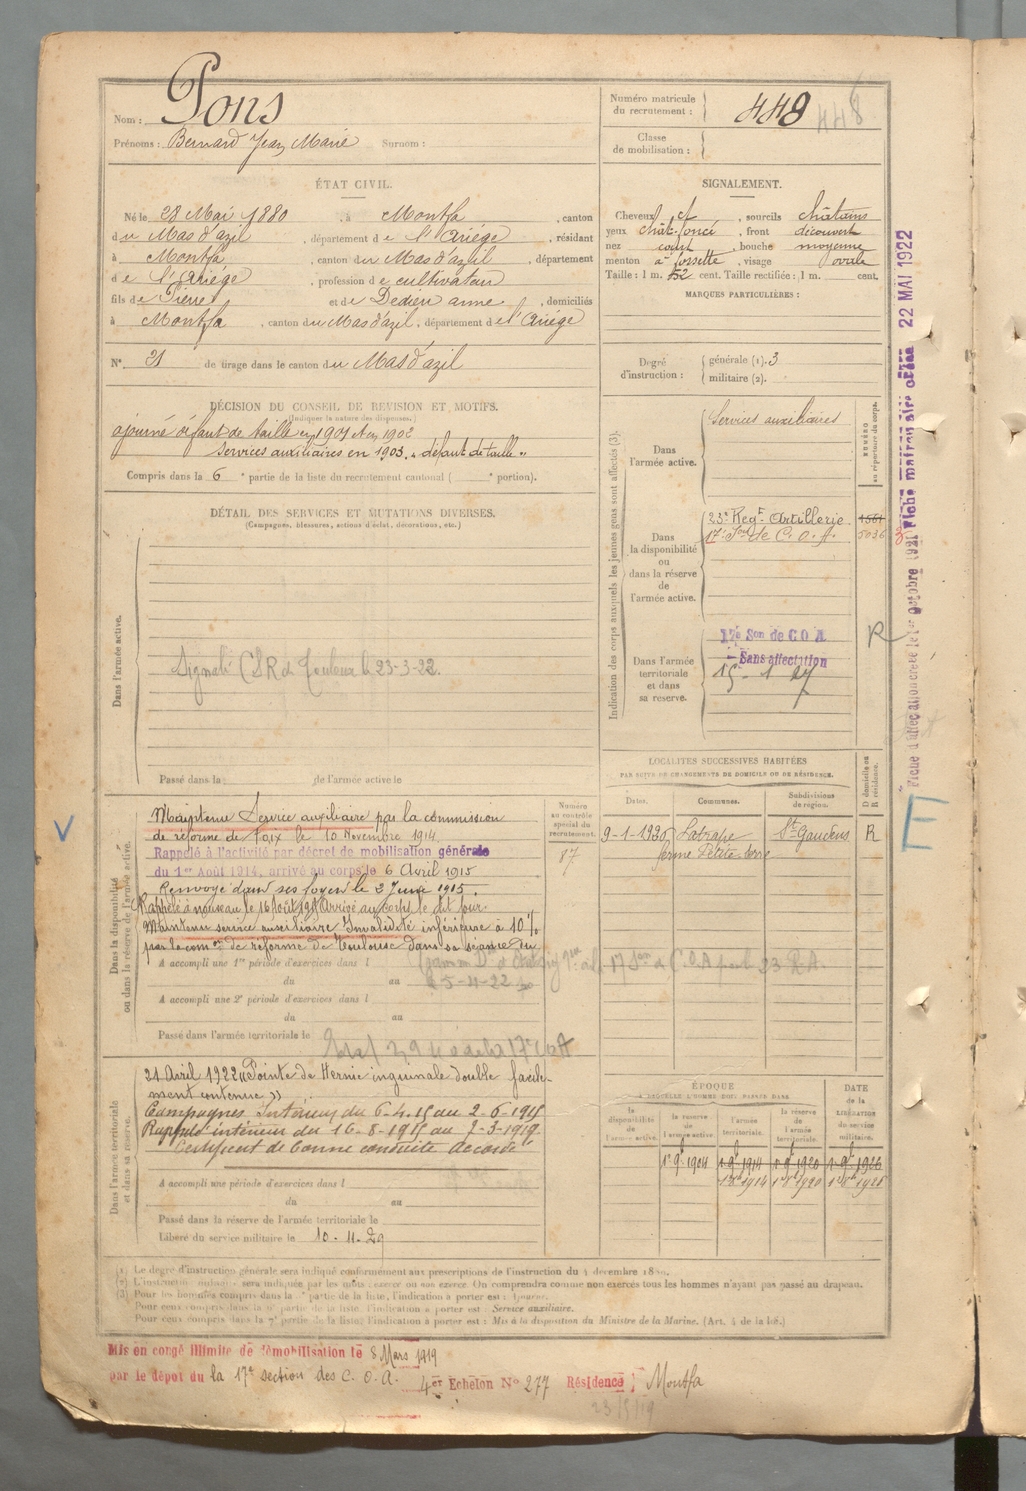 Nom : Pons
Prénoms : Bernard Jean Marie Surnom :
Numéro matricule du recrutement : 448
448
Classe de mobilisation :
ÉTAT CIVIL.
Né le 28 Mai 1880, à Montfa, canton
du Mas d'azil, département de l'Ariége, résidant
à Montfa, canton du Mas d'azil, département
de l'Ariége, profession de cultivateur
fils de Pierre et de Dedieu anne, domiciliés
à Montfa, canton du Mas d'azil, département de l'Ariége
N° 21 de tirage dans le canton du Mas d'azil
SIGNALEMENT.
Cheveux ct, sourcils châtains
yeux chât-foncé, front découvert
nez court, bouche moyenne
menton à fossette, visage ovale
Taille : 1 m. 52 cent. Taille rectifiée : 1 m. cent.
MARQUES PARTICULIÈRES :
Degré d'instruction : générale (1). 3
militaire (2).
DÉCISION DU CONSEIL DE RÉVISION ET MOTIFS.
(Indiquer la nature des dispenses.)
ajourné défaut de taille en 1901 et en 1902
Services auxiliaires en 1903. « défaut de taille »
Compris dans la 6e partie de la liste du recrutement cantonal ( e portion).
DÉTAIL DES SERVICES ET MUTATIONS DIVERSES.
(Campagnes, blessures, actions d'éclat, décorations, etc.)
Dans l'armée active.
Signalé CSR d Toulouse le 23-3-22.
Passé dans la de l'armée active le
Indication des corps auxquels les jeunes gens sont affectés (3).
NUMÉRO au répertoire du corps.
Dans l'armée active.
Services auxiliaires
Dans la disponibilité ou dans la réserve de l'armée active.
23e Regt Artillerie. 1561
17e Son de C. O. A. 5036
Dans l'armée territoriale et dans sa réserve.
17e Son de C O A
Sans affectation
15 - 1 27
R
Fiche matriculaire créée 22 MAI 1922
Fiche d'affectation créée le 1er octobre 1921
F
LOCALITÉS SUCCESSIVES HABITÉES
PAR SUITE DE CHANGEMENTS DE DOMICILE OU DE RÉSIDENCE.
D domicile ou R résidence.
Dates. Communes. Subdivisions de région.
9-1-1926 Latrape St-Gaudens R
ferme Petite terre
Numéro au contrôle spécial du recrutement.
87
Dans la disponibilité ou dans la réserve de l'armée active.
Maintenu Service auxiliaire par la commission
de réforme de Foix le 10 Novembre 1914
Rappelé à l'activité par décret de mobilisation générale
du 1er Août 1914, arrivé au corps le 6 Avril 1915
Renvoyé dans ses foyers le 2 Juin 1915.
Rappelé à nouveau le 16 Août 1915 Arrivé au corps le dit jour.
Maintenu service auxiliaire Invalidité inférieure à 10 %
par la comon de réforme de Toulouse dans sa séance du
A accompli une 1re période d'exercices dans l
du au
A accompli une 2e période d'exercices dans l
du au
Passé dans l'armée territoriale le
Dans l'armée territoriale et dans sa réserve.
21 Avril 1922 « Pointe de Hernie inguinale double facile-
ment contenue »
Campagnes Intérieur du 6-4-15 au 2-6-1915
Rappelé intérieur du 16-8-1915 au 7-3-1919
Certificat de bonne conduite Accordé
A accompli une période d'exercices dans l
du au
Passé dans la réserve de l'armée territoriale le
Libéré du service militaire le 10-11-29
ÉPOQUE
A LAQUELLE L'HOMME DOIT PASSER DANS
la disponibilité de l'armée active.
la réserve de l'armée active.
l'armée territoriale.
la réserve de l'armée territoriale.
DATE de la LIBÉRATION du service militaire.
1er 9bre 1904 1er 9bre 1914 1er 9bre 1920 1er 9bre 1926
(1) Le degré d'instruction générale sera indiqué conformément aux prescriptions de l'instruction du 4 décembre 1889.
(2) L'instruction militaire sera indiquée par les mots : exercé ou non exercé. On comprendra comme non exercés tous les hommes n'ayant pas passé au drapeau.
(3) Pour les hommes compris dans la 5e partie de la liste, l'indication à porter est : Ajourné.
Pour ceux compris dans la 6e partie de la liste, l'indication à porter est : Service auxiliaire.
Pour ceux compris dans la 7e partie de la liste, l'indication à porter est : Mis à la disposition du Ministre de la Marine. (Art. 4 de la loi.)
Mis en congé illimité de démobilisation le 8 Mars 1919
par le dépôt du la 17e section des C. O. A. 4er Echelon N° 277 Résidence Montfa
23/5/19